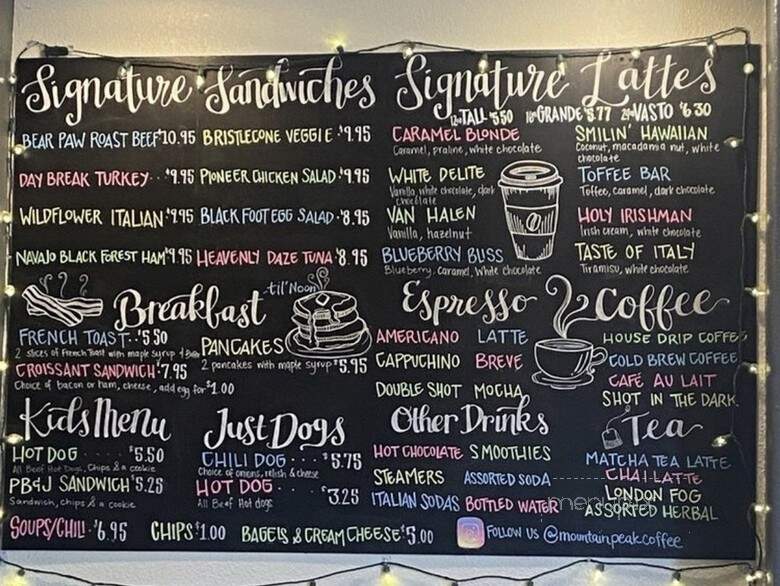 Signature Sandwiches
BEAR PAW ROAST BEEF $10.95
BRISTLECONE VEGGIE $9.95
DAY BREAK TURKEY.. $9.95
PIONEER CHICKEN SALAD $9.95
WILDFLOWER ITALIAN $9.95
BLACK FOOT EGG SALAD $8.95
NAVAJO BLACK FOREST HAM $9.95
HEAVENLY DAZE TUNA $8.95
Signature Lattes
12oz TALL $5.50 16oz GRANDE $5.77 24oz VASTO $6.30
CARAMEL BLONDE
Caramel, praline, white chocolate
WHITE DELITE
Vanilla, white chocolate, dark
chocolate
VAN HALEN
Vanilla, hazelnut
BLUEBERRY BLISS
Blueberry, caramel, white chocolate
SMILIN' HAWAIIAN
Coconut, macadamia nut, white
chocolate
TOFFEE BAR
Toffee, caramel, dark chocolate
HOLY IRISHMAN
Irish cream, white chocolate
TASTE OF ITALY
Tiramisu, white chocolate
Breakfast
'til Noon
FRENCH TOAST.. $5.50
2 slices of French Toast with maple syrup &
CROISSANT SANDWICH $7.95
Choice of bacon or ham, cheese, add egg for $1.00
PANCAKES
2 pancakes with maple syrup $5.95
Espresso
AMERICANO
LATTE
CAPPUCHINO
BREVE
DOUBLE SHOT
MOCHA
Coffee
HOUSE DRIP COFFEE
COLD BREW COFFEE
CAFÉ AU LAIT
SHOT IN THE DARK
Kids Menu
HOT DOG ..... $5.50
All Beef Hot Dogs, Chips & a cookie
PB&J SANDWICH $5.25
Sandwich, chips & a cookie
Just Dogs
CHILI DOG .... $5.75
Choice of onions, relish & cheese
HOT DOG .... $3.25
All Beef Hot dogs
Other Drinks
HOT CHOCOLATE
SMOOTHIES
STEAMERS
ASSORTED SODA
ITALIAN SODAS
BOTTLED WATER
Tea
MATCHA TEA LATTE
CHAI LATTE
LONDON FOG
ASSORTED HERBAL
SOUPS/CHILI.. $6.95
CHIPS $1.00
BAGELS & CREAM CHEESE $5.00
FOLLOW US @mountainpeak.coffee